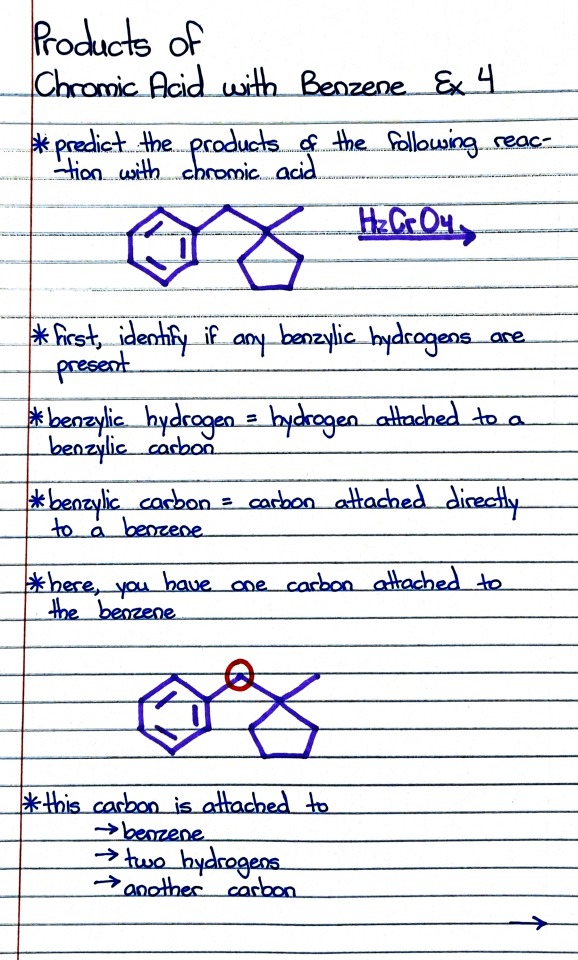 Products of
Chromic Acid with Benzene Ex 4
* predict the products of the following reac-
-tion with chromic acid
H2CrO4
* first, identify if any benzylic hydrogens are
present
* benzylic hydrogen = hydrogen attached to a
benzylic carbon
* benzylic carbon = carbon attached directly
to a benzene
* here, you have one carbon attached to
the benzene
* this carbon is attached to
→ benzene
→ two hydrogens
→ another carbon
→